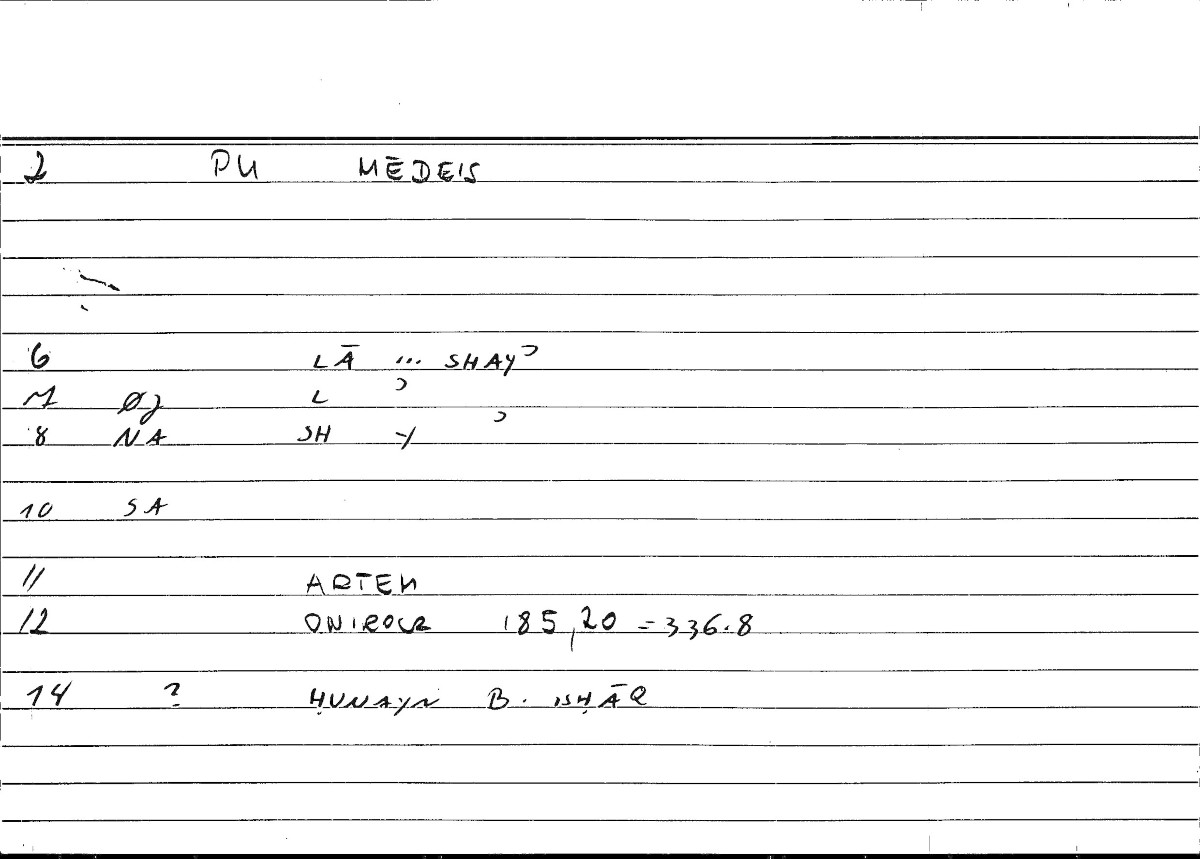 2 PU MĒDEIS
6 LĀ ... SHAYʾ
7 Øj L ʾ
8 NA SH Y ʾ
10 SA
11 ARTEM
12 ONIROCR 185,20 = 336.8
14 ? ḤUNAYN B. ISḤĀQ